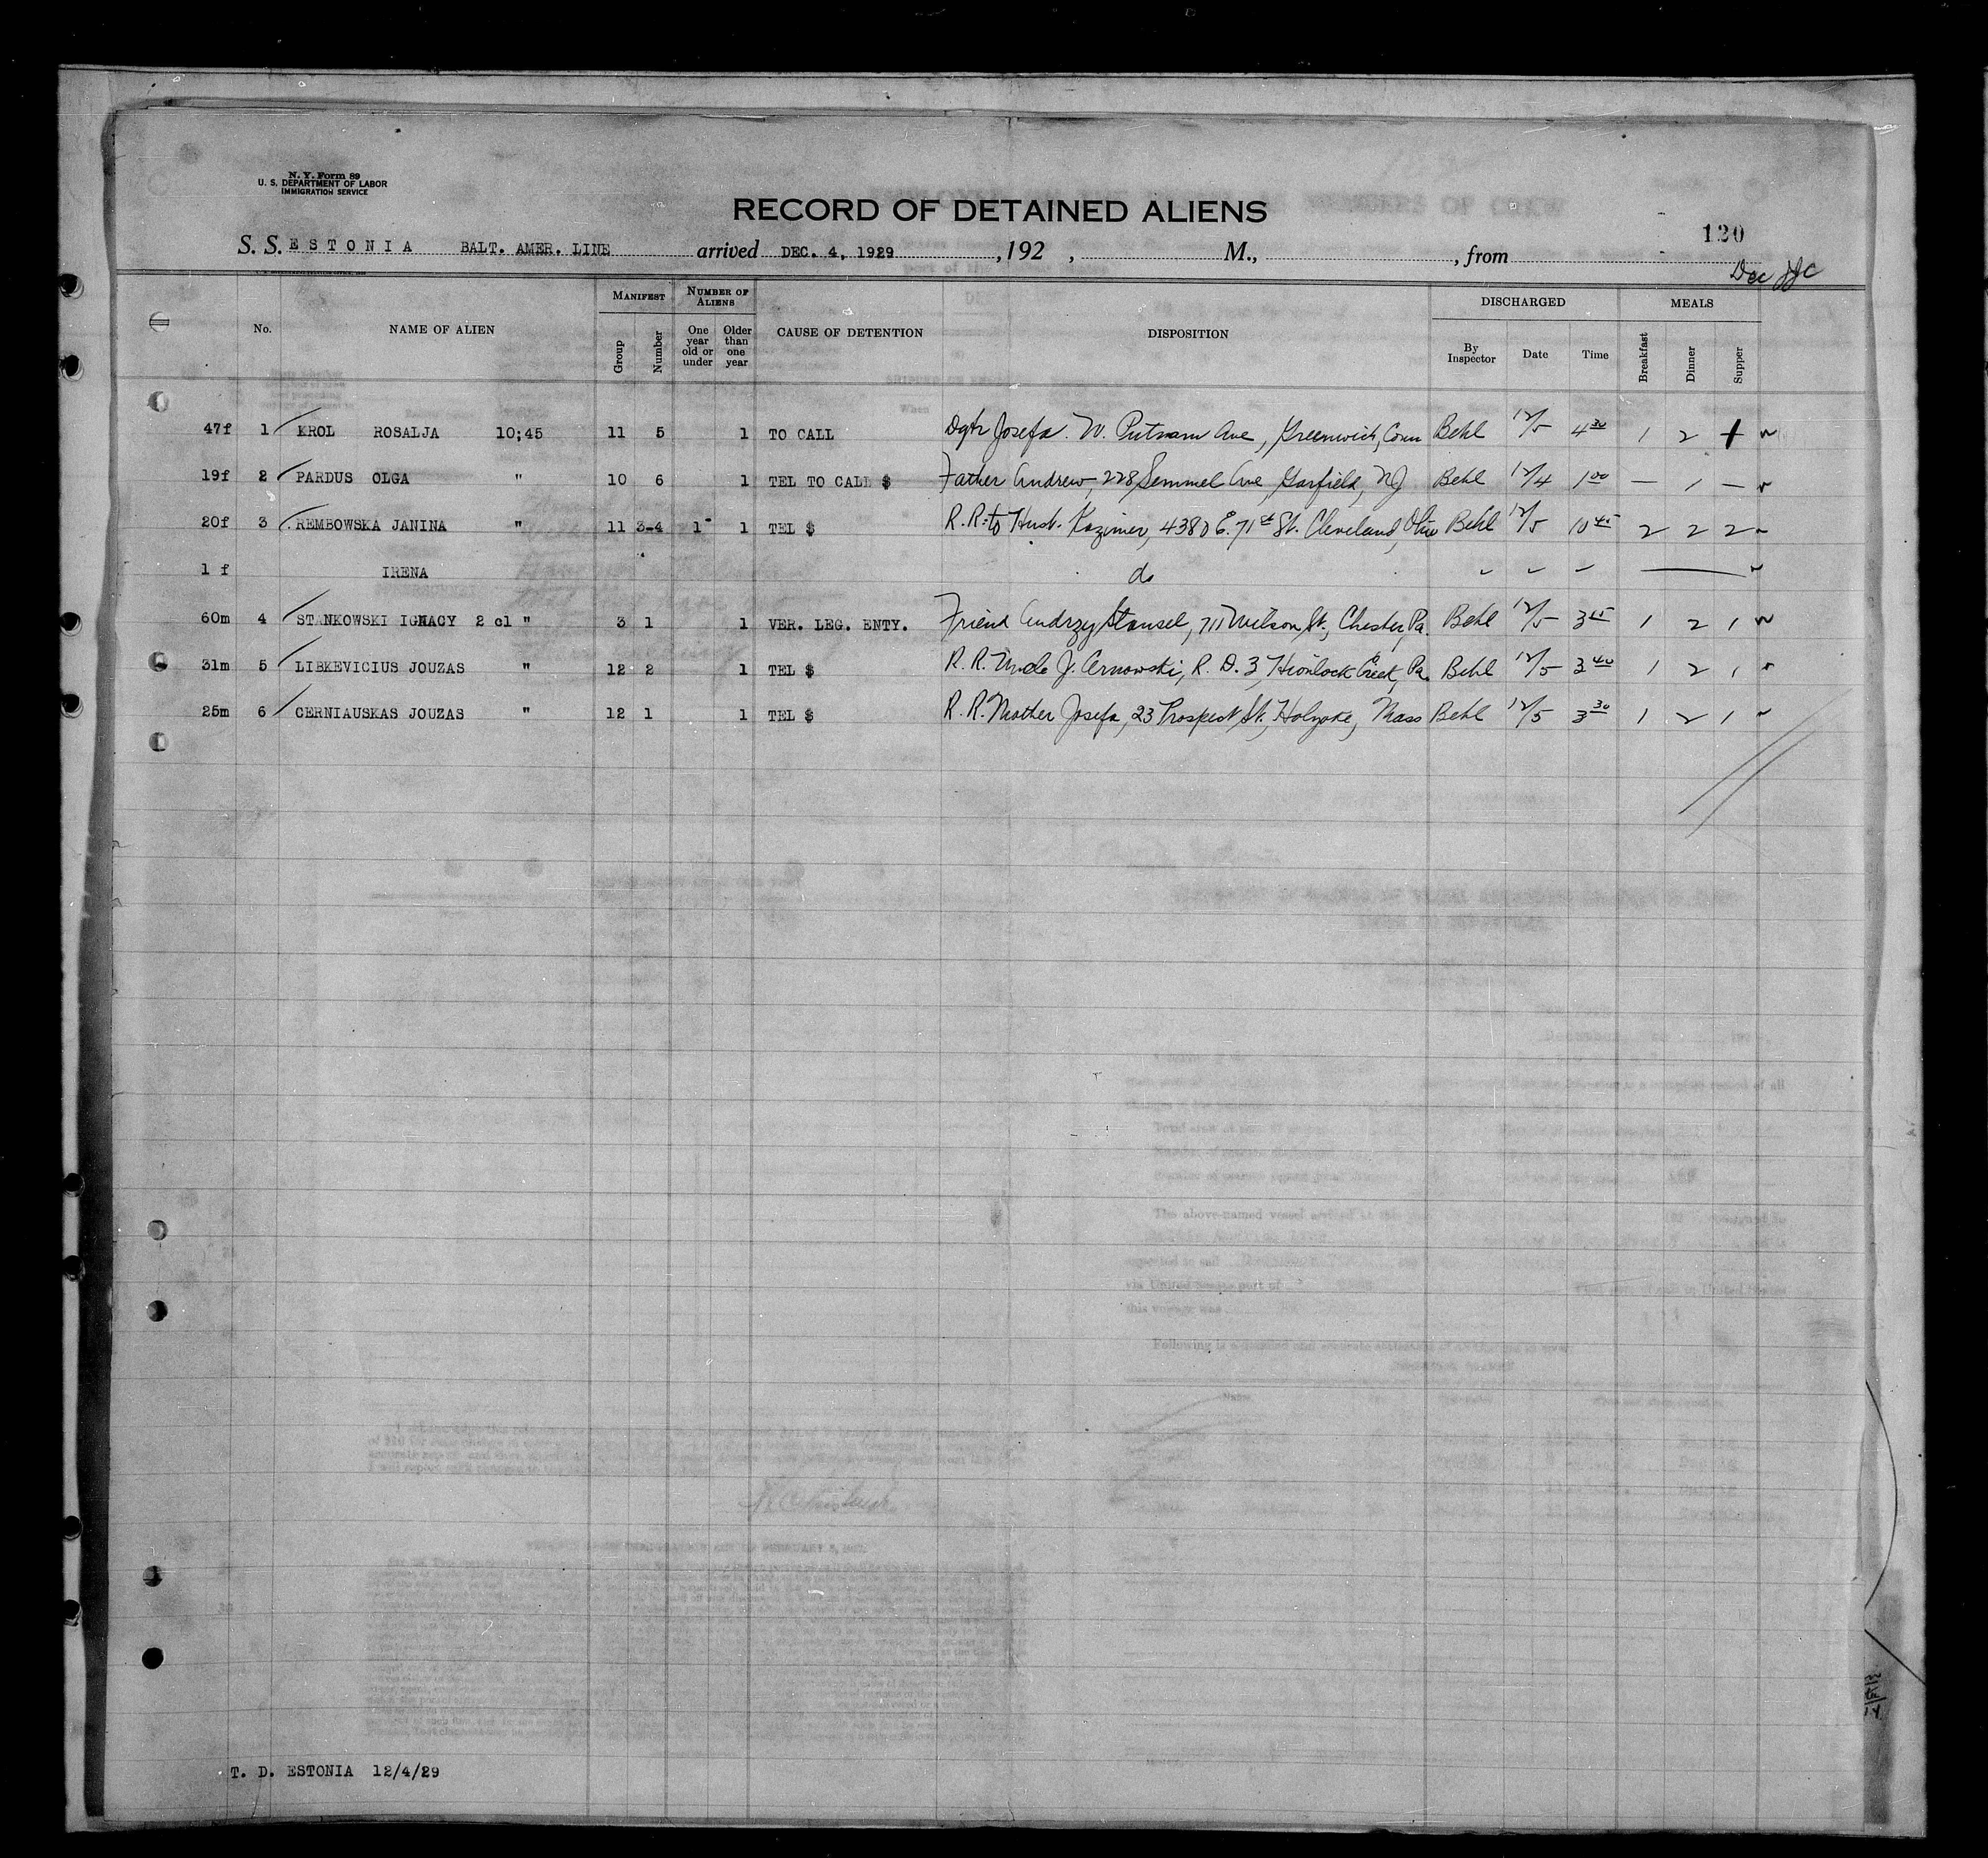 N. Y. Form 89
U. S. DEPARTMENT OF LABOR
IMMIGRATION SERVICE
RECORD OF DETAINED ALIENS
120
S. S. ESTONIA BALT. AMER. LINE arrived DEC. 4, 1929, 192 , M., , from
Dec
No. NAME OF ALIEN MANIFEST Group Number NUMBER OF ALIENS One year old or under Older than one year CAUSE OF DETENTION DISPOSITION DISCHARGED By Inspector Date Time MEALS Breakfast Dinner Supper
47f 1 KROL ROSALJA 10;45 11 5 1 TO CALL Dgtr Josefa. W. Putnam Ave, Greenwich, Conn Behl 12/5 4 30 1 2 +
19f 2 PARDUS OLGA " 10 6 1 TEL TO CALL $ Father Andrew, 228 Semmel Ave, Garfield, NJ Behl 12/4 1 00 — 1 —
20f 3 REMBOWSKA JANINA " 11 3-4 1 1 TEL $ R.R. to Husb. Kazimer, 4380 E. 71st St. Cleveland, Ohio Behl 12/5 10 45 2 2 2
1 f IRENA do
60m 4 STANKOWSKI IGNACY 2 cl " 3 1 1 VER. LEG. ENTY. Friend Andrzy Stansel, 711 Wilson St, Chester, Pa. Behl 12/5 3 45 1 2 1
31m 5 LIBKEVICIUS JOUZAS " 12 2 1 TEL $ R.R. Uncle J. Cernowski, R. D. 3, Hunlock Creek, Pa. Behl 12/5 3 40 1 2 1
25m 6 CERNIAUSKAS JOUZAS " 12 1 1 TEL $ R.R. Mother Josefa, 23 Prospect St, Holyoke, Mass Behl 12/5 3 30 1 2 1
T. D. ESTONIA 12/4/29